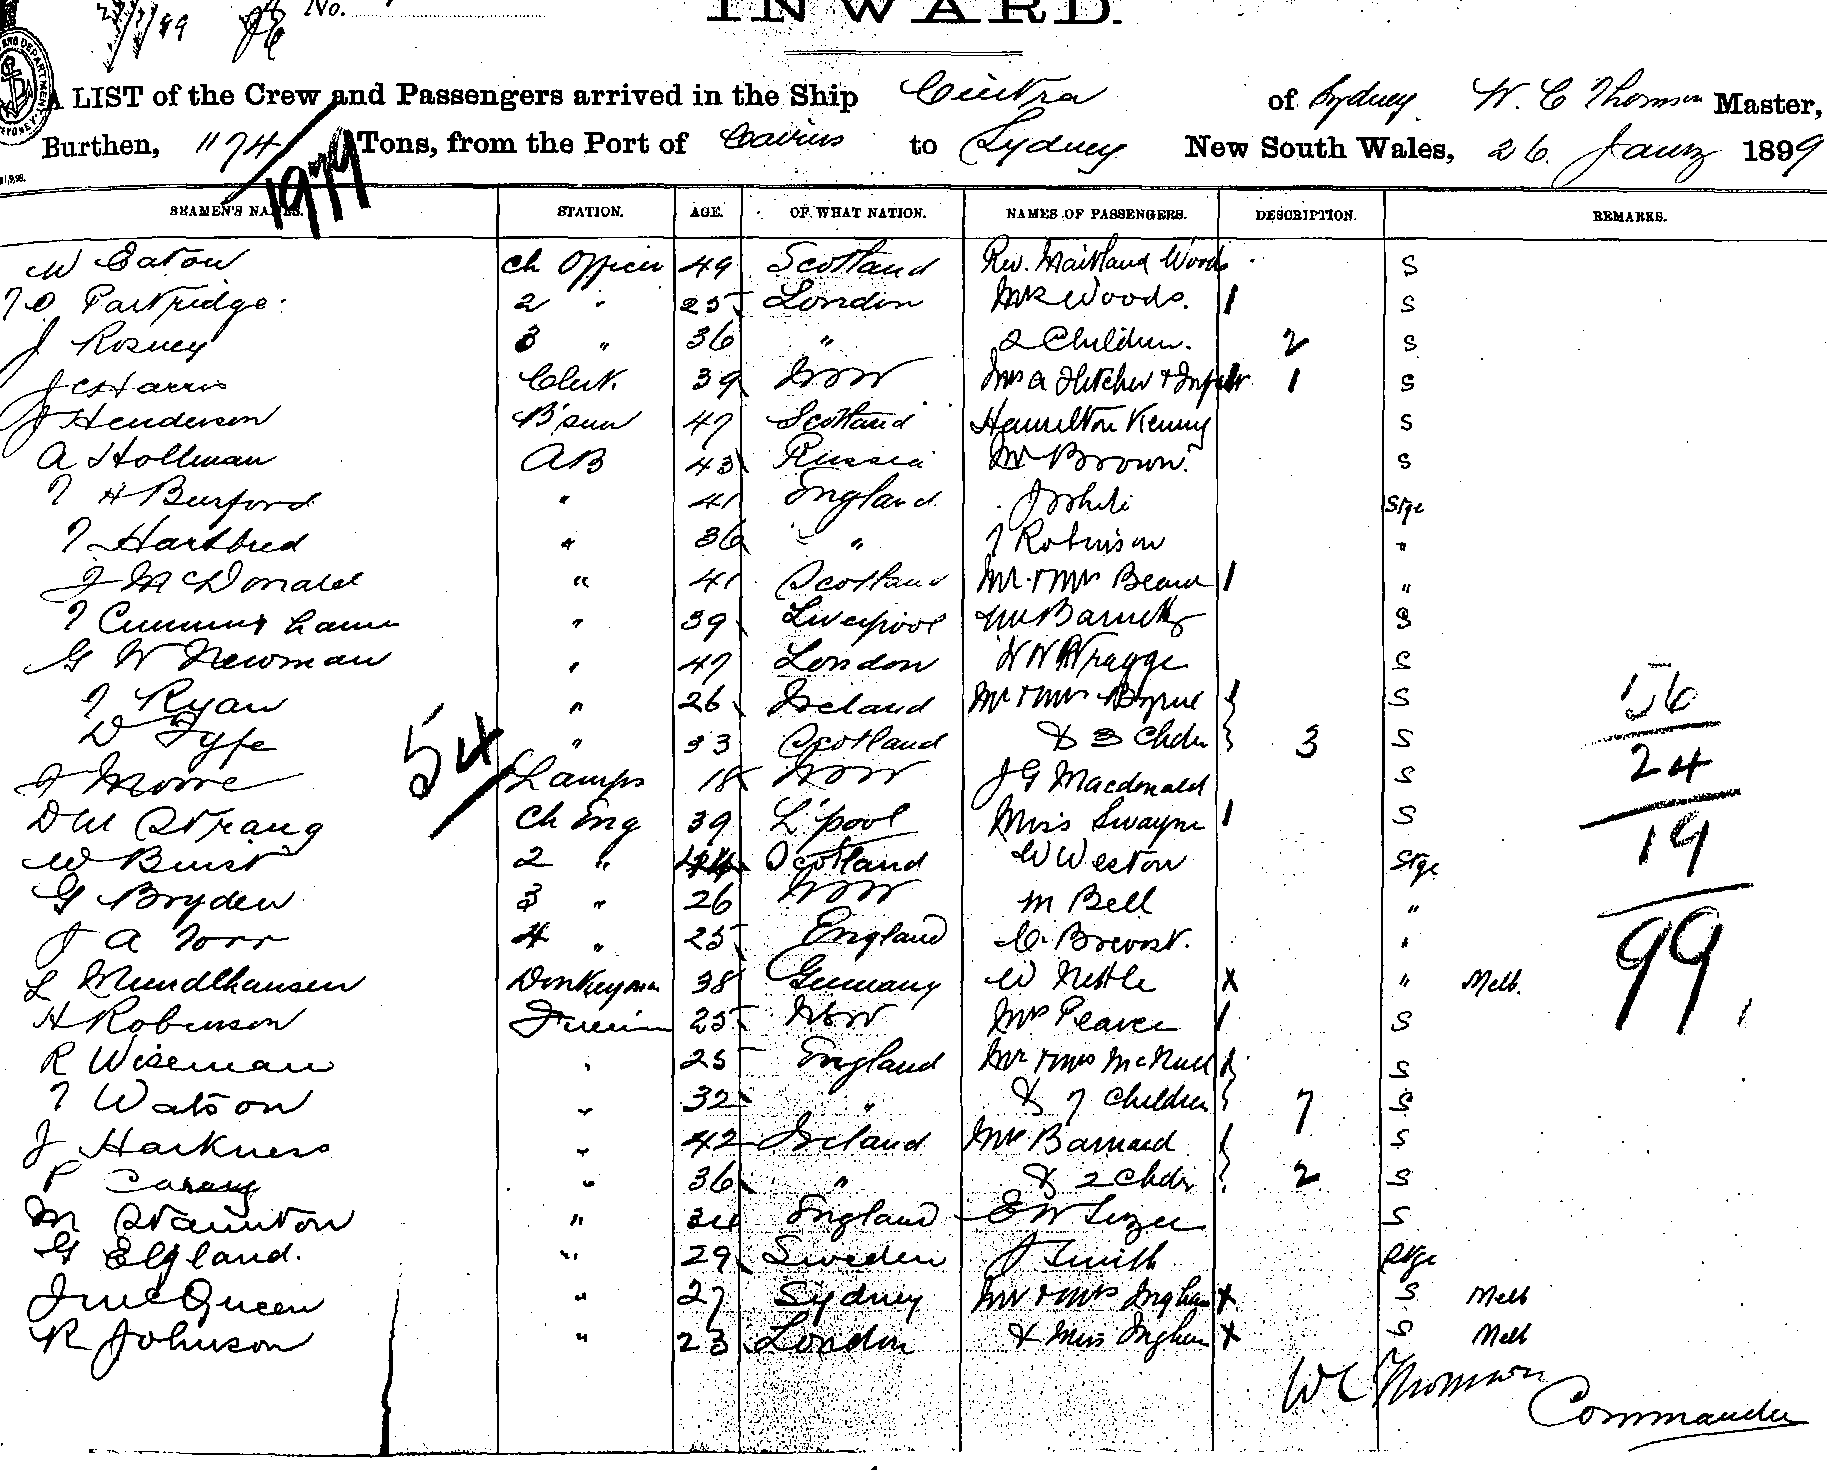 28/1/99 No.
INWARD.
A LIST of the Crew and Passengers arrived in the Ship Cintra of Sydney W. C Thomson Master,
Burthen, 1174/1979 Tons, from the Port of Cairns to Sydney New South Wales, 26 Jany 1899
SEAMEN'S NAMES. STATION. AGE. OF WHAT NATION. NAMES OF PASSENGERS. DESCRIPTION. REMARKS.
W Eaton Ch Officer 49 Scotland Rev. Maitland Woods S
Partridge 2 " 25 London Mrs Woods. 1 S
J Rosney 3 " 36 " 2 Children. 2 S
J C Harris Clerk. 39 NSW Mrs A Fletcher & Infant 1 S
J Henderson B'sun 47 Scotland Hamilton Kenny S
A Hollman AB 43 Russia Mr Brown. S
T H Burford " 41 England J White Stge
T Hartbred " 36 " T Robinson "
J McDonald " 41 Scotland Mr & Mrs Beard 1 "
T " 39 Liverpool Mr Barnett S
G W Newman " 47 London W Wragge S
T Ryan " 26 Ireland Mr & Mrs Byrne } S
D Fyfe " 33 Scotland & 3 Chdn } 3 S
54
J Moore Lamps 18 NSW J G Macdonald S
D M Strang Ch Eng 39 L'pool Miss Swayne 1 S
W Buist 2 " 44 Scotland W Weston Stge
G Bryden 3 " 26 NSW M Bell "
J A Torr 4 " 25 England C. Brevost. "
L Mundlhausen Donkeyman 38 Germany W Nettle X " Melb.
H Robinson Fireman 25 NSW Mrs Pearce 1 S
R Wiseman " 25 England Mr & Mrs McNull } S
T Watson " 32 " & 7 Children } 7 S
J Harkness " 42 Ireland Mrs Barnard } S
P Carney " 36 " & 2 Chdn } 2 S
M Staunton " 34 England E W S
G Elgland. " 29 Sweden J Smith Stge
J McQueen " 27 Sydney Mr & Mrs Ingham X S Melb
R Johnson " 23 London & Miss Ingham X S Melb
56
24
19
99
W C Thomson
Commander